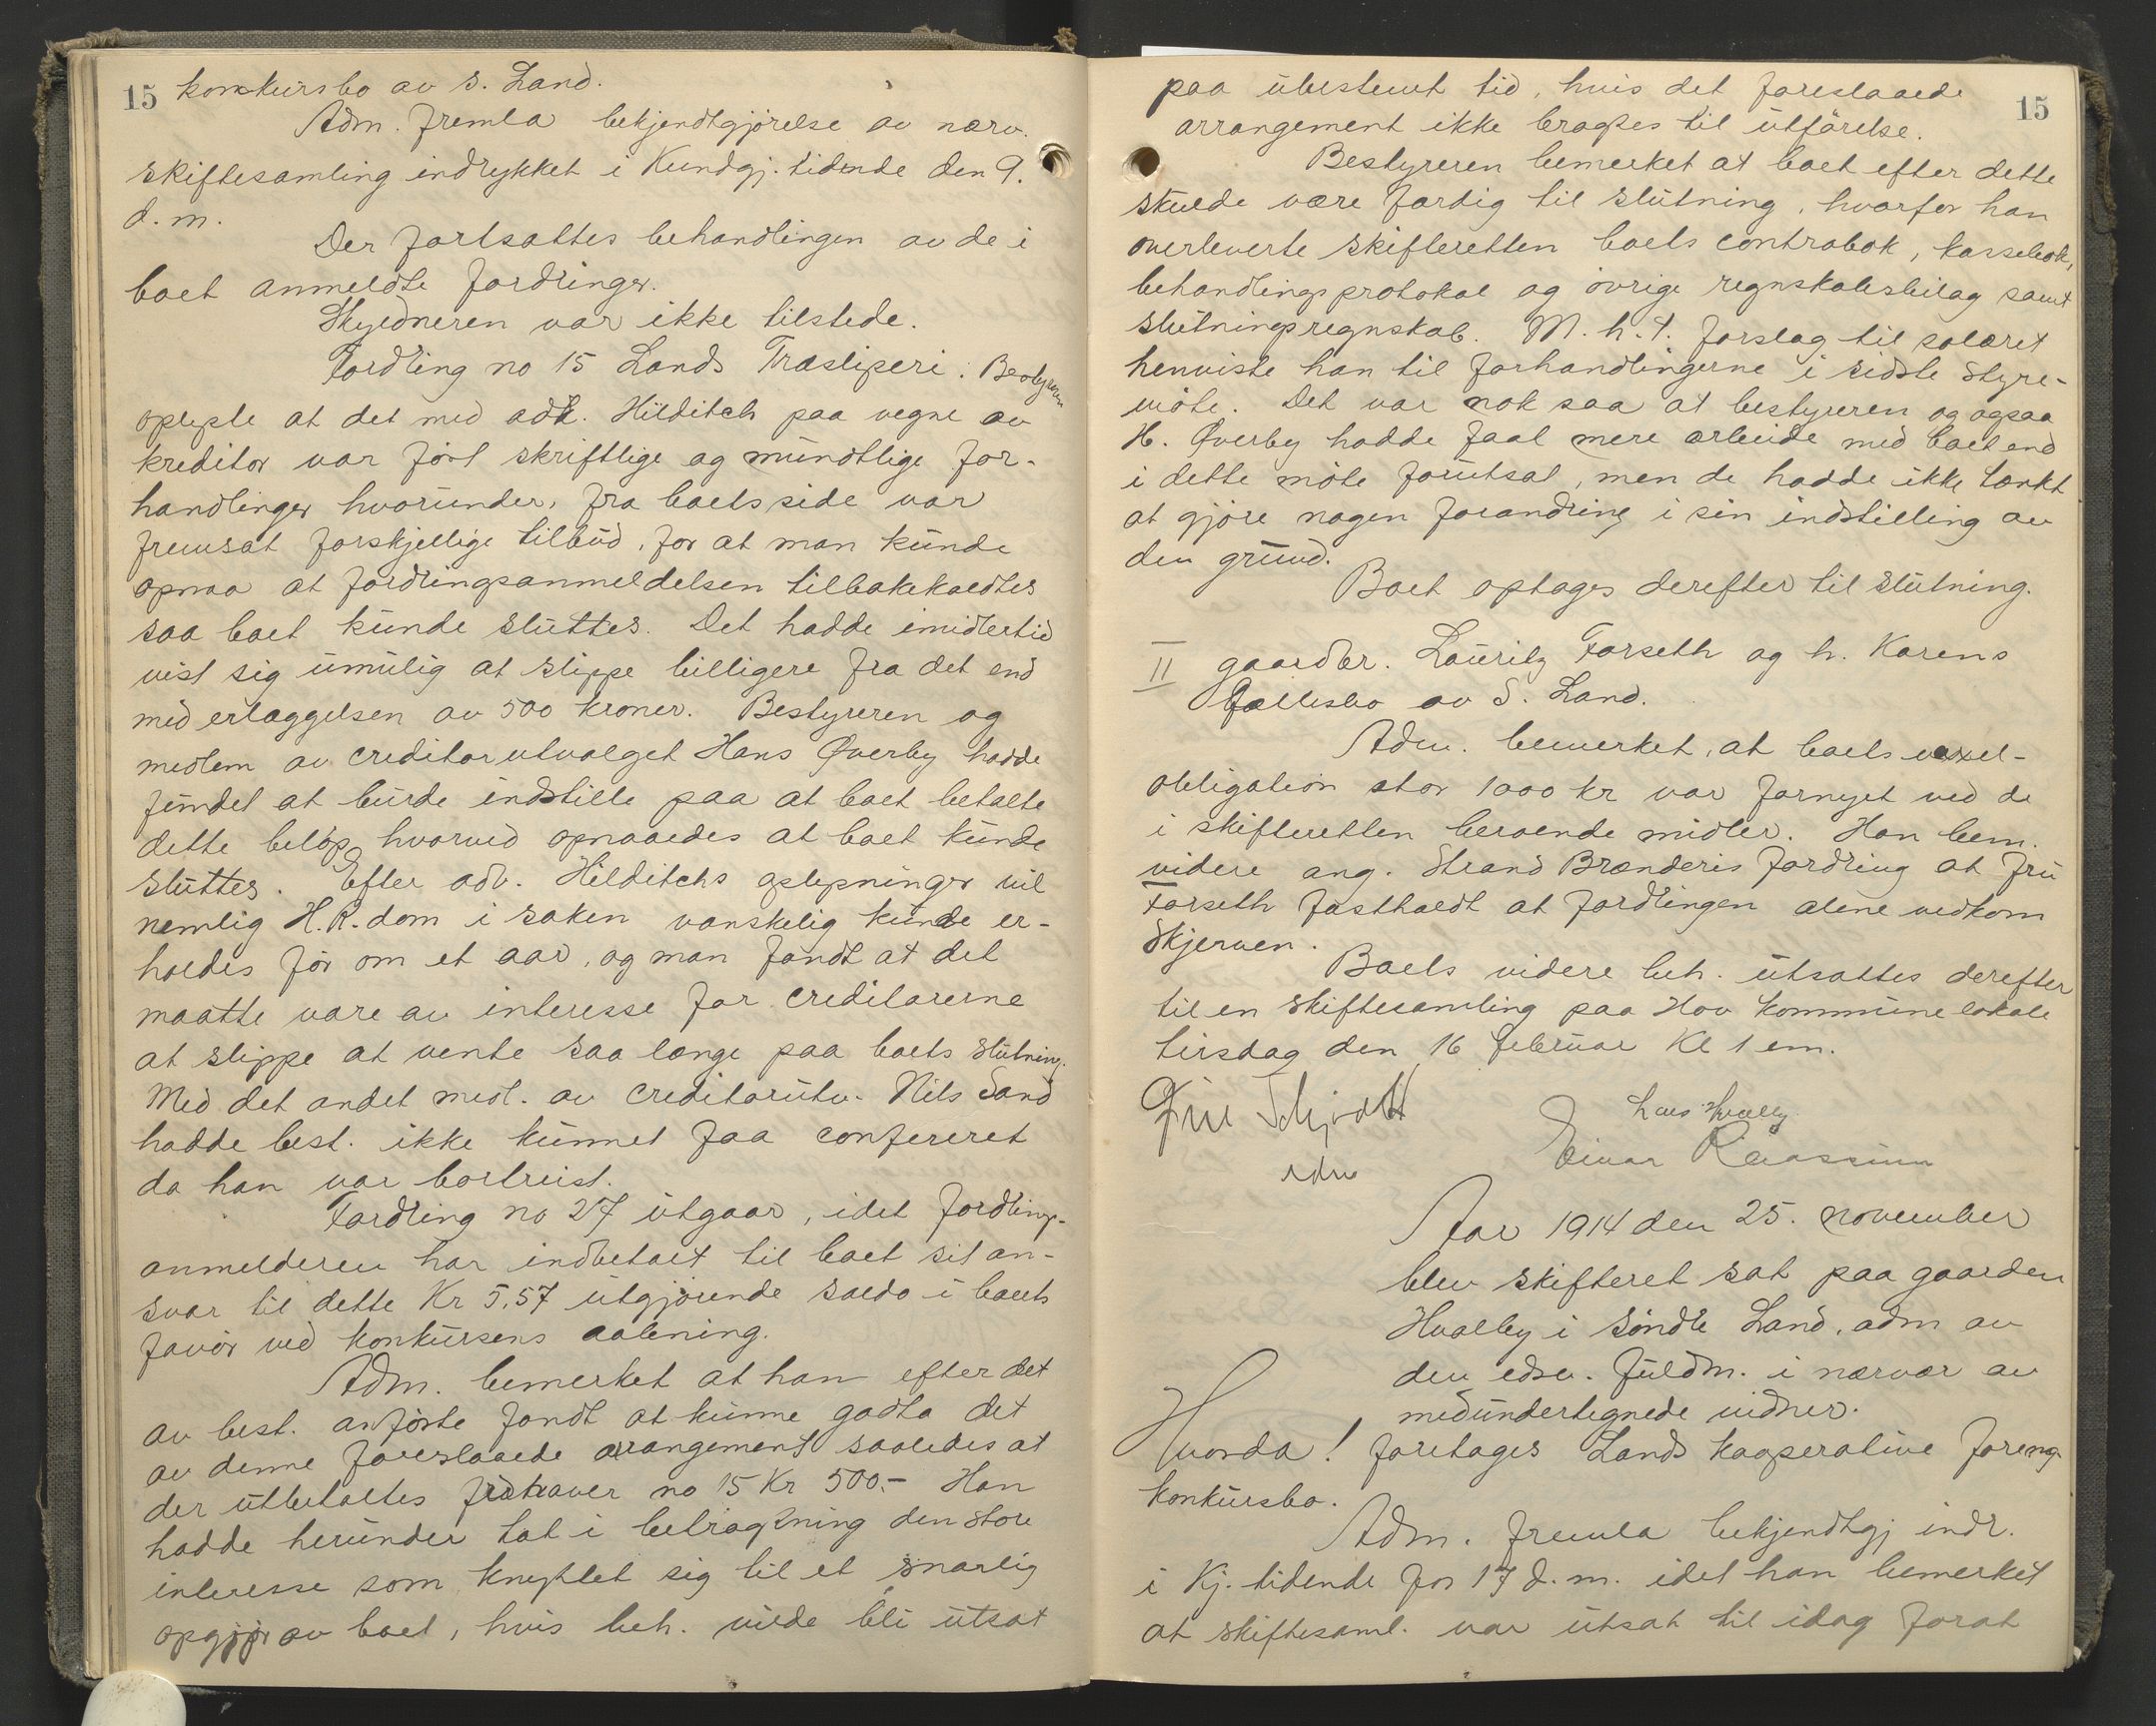 15 konkursbo av S. Land.
Adm. fremla bekjendtgjørelse av nærv.
skiftesamling indrykket i Kundgj. tidende den 9.
d. m.
Der fortsattes behandlingen av de i
boet anmeldte fordringer.
Skyldneren var ikke tilstede.
Fordring no 15 Lands Træsliperi. Bestyreren
oplyste at det med adv. Hilditch paa vegne av
kreditor var ført skriftlige og mundtlige for-
handlinger hvorunder, fra boets side var
fremsat forskjellige tilbud, for at man kunde
opnaa at fordringsanmeldelsen tilbakekaldtes
saa boet kunde sluttes. Det hadde imidlertid
vist sig umulig at slippe billigere fra det end
med erlæggelsen av 500 kroner. Bestyreren og
medlem av creditorutvalget Hans Øverby hadde
fundet at burde indstille paa at boet betalte
dette beløp hvorved opnaaedes at boet kunde
sluttes. Efter adv. Hilditchs oplysninger vil
nemlig H.R. dom i saken vanskelig kunde er-
holdes før om et aar, og man fandt at det
maatte være av interesse for creditorerne
at slippe at vente saa længe paa boets slutning.
Med det andet medl. av creditorutv. Nils Sand
hadde best. ikke kunnet faa confereret
da han var bortreist.
Fordring no 27 utgaar, idet fordrings-
anmelderen har indbetalt til boet sit an-
svar til dette Kr 5,57 utgjørende saldo i boets
favør ved konkursens aabning.
Adm. bemerket at han efter det
av best. anførte fandt at kunne godta det
av denne foreslaaede arrangement saaledes at
der utbetaltes fordr.haver no 15 Kr 500.- Han
hadde herunder tat i betragtning den store
interesse som knyttet sig til et snarlig
opgjør av boet, hvis beh. vilde bli utsat
15
paa ubestemt tid, hvis det foreslaaede
arrangement ikke bragtes til utførelse.
Bestyreren bemerket at boet efter dette
skulde være færdig til slutning, hvorfor han
overleverte skifteretten boets contrabok, kassebok,
behandlingsprotokol og øvrige regnskabsbilag samt
slutningsregnskab. M. h. t. forslag til salæret
henviste han til forhandlingerne i sidste styre-
møte. Det var nok saa at bestyreren og ogsaa
H. Øverby hadde faat mere arbeide med boet end
i dette møte forutsat, men de hadde ikke tænkt
at gjøre nogen forandring i sin indstilling av
den grund.
Boet optages derefter til slutning.
II gaardbr. Lauritz Forseth og h. Karens
fællesbo av S. Land.
Adm. bemerket, at boets vexel-
obligation stor 1000 kr var fornyet ved de
i skifteretten beroende midler. Han bem.
videre ang. Strand Brænderis fordring at fru
Forseth fastholdt at fordringen alene vedkom
Skjerven.
Boets videre beh. utsattes derefter
til en skiftesamling paa Hov kommunelokale
tirsdag den 16 februar Kl 1 em.
Schjødt Lars Hvalby
adm Einar Rasmussen
Aar 1914 den 25. november
blev skifteret sat paa gaarden
Hvalby i Søndre Land, adm av
den edsv. fuldm. i nærvær av
medundertegnede vidner.
Hvorda! foretages Lands kooperative foreng.
konkursbo.
Adm. fremla bekjendtgj indr.
i Kj. tidende for 17 d. m. idet han bemerket
at skiftesaml. var utsat til idag forat